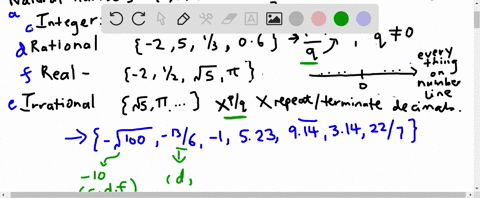 a
c Integer
d Rational {-2, 5, 1/3, 0.6} → /q , q ≠ 0
f Real - {-2, 1/2, √5, π}
0
every
thing
on
number
line
e Irrational {√5, π...} X p/q X repeat/terminate decimals.
→ {-√100, -13/6, -1, 5.23, 9.14, 3.14, 22/7}
-10
(d,